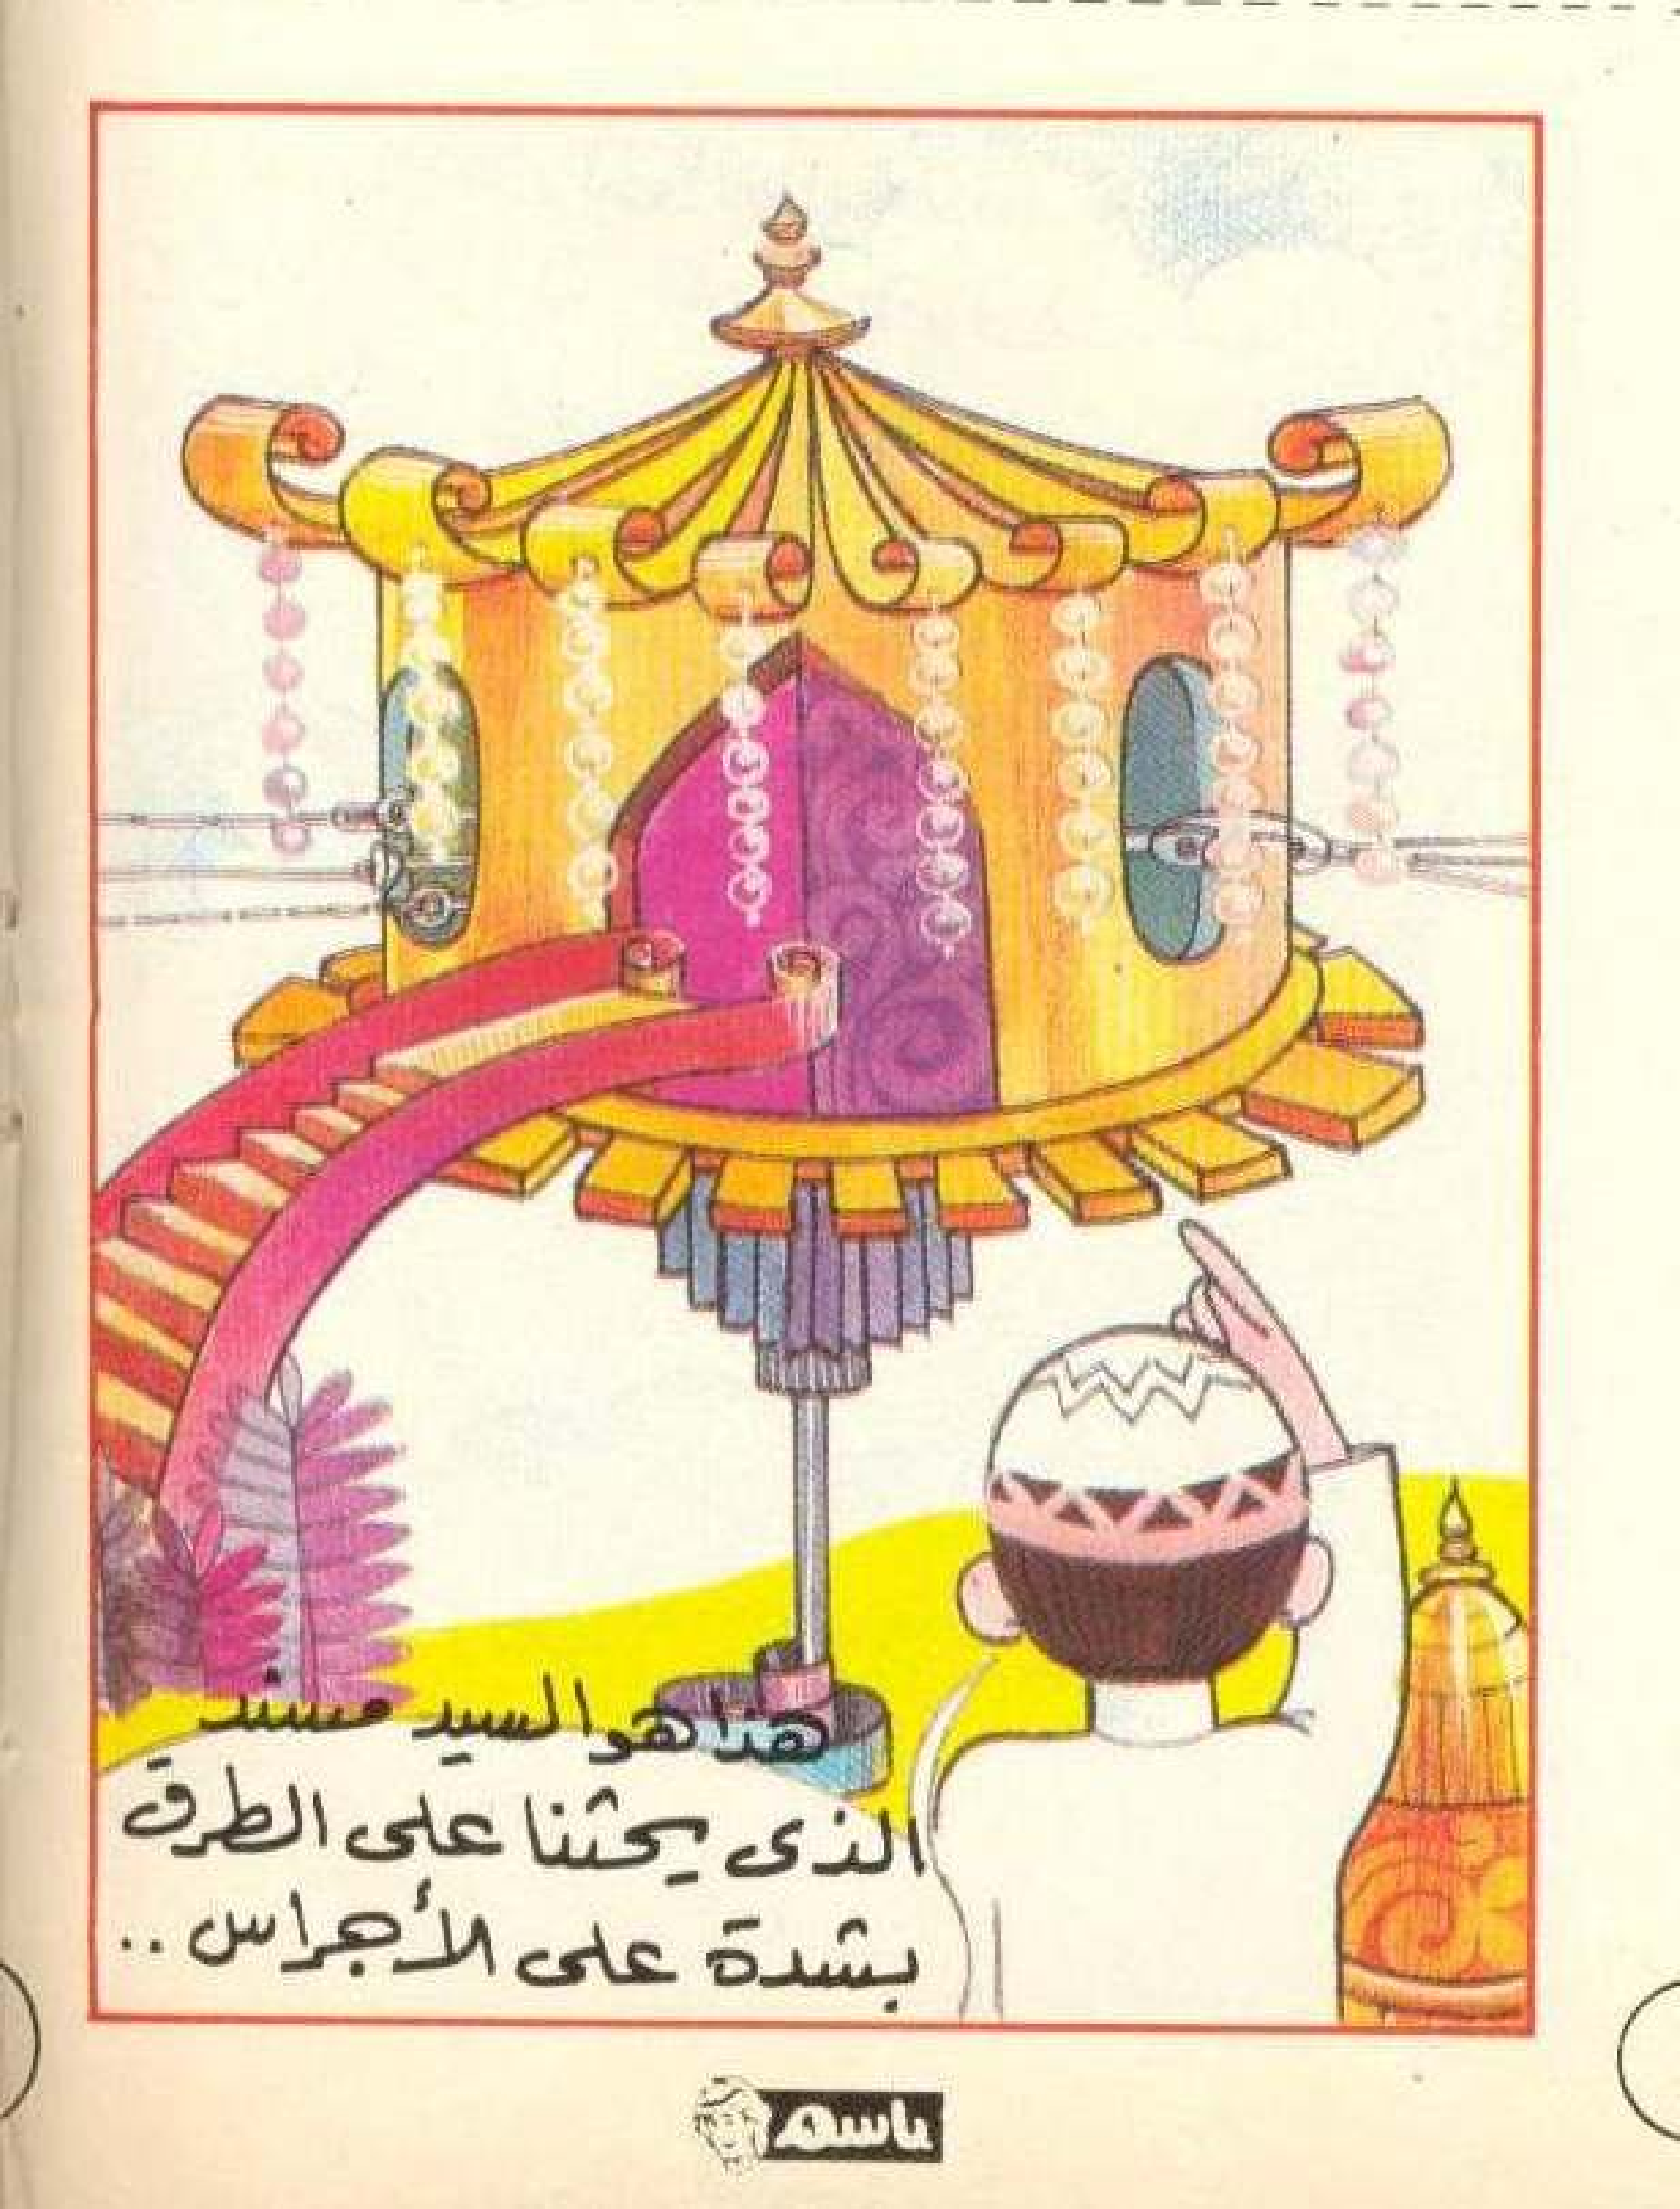 هذا هو السيد مسند
الذى يحثنا على الطرق
بشدة على الأجراس ..
باسم